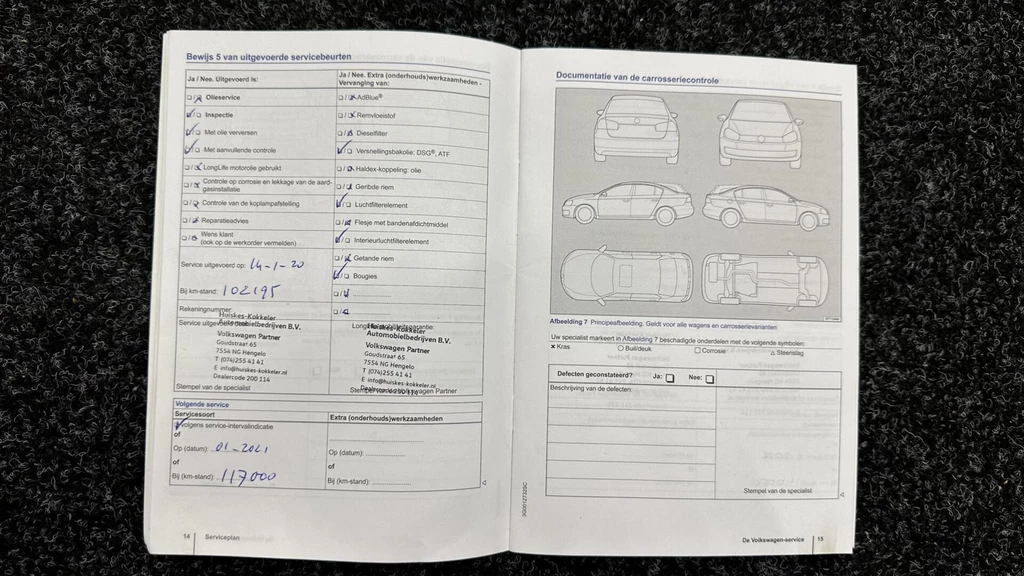 Bewijs 5 van uitgevoerde servicebeurten
Ja / Nee. Uitgevoerd is:
Olieservice
Inspectie
Met olie verversen
Met aanvullende controle
LongLife motorolie gebruikt
Controle op corrosie en lekkage van de aard-
gasinstallatie
Controle van de koplampafstelling
Reparatieadvies
Wens klant
(ook op de werkorder vermelden)
Service uitgevoerd op: 14-1-20
Bij km-stand: 102195
Rekeningnummer:
Huiskes-Kokkeler
Automobielbedrijven B.V.
Volkswagen Partner
Goudstraat 65
7554 NG Hengelo
T (074)255 41 41
E info@huiskes-kokkeler.nl
Dealercode 200 114
Stempel van de specialist
Ja / Nee. Extra (onderhouds)werkzaamheden -
Vervanging van:
AdBlue®
Remvloeistof
Dieselfilter
Versnellingsbakolie: DSG®, ATF
Haldex-koppeling: olie
Geribde riem
Luchtfilterelement
Flesje met bandenafdichtmiddel
Interieurluchtfilterelement
Getande riem
Bougies
Huiskes-Kokkeler
Automobielbedrijven B.V.
Volkswagen Partner
Goudstraat 65
7554 NG Hengelo
T (074)255 41 41
E info@huiskes-kokkeler.nl
Dealercode 200 114
Volkswagen Partner
Volgende service
Servicesoort
Volgens service-intervalindicatie
of
Op (datum): 01-2021
of
Bij (km-stand): 117000
Extra (onderhouds)werkzaamheden
Op (datum):
of
Bij (km-stand):
14 Serviceplan
Documentatie van de carrosseriecontrole
Afbeelding 7 Principeafbeelding. Geldt voor alle wagens en carrosserievarianten
Uw specialist markeert in Afbeelding 7 beschadigde onderdelen met de volgende symbolen:
x Kras O Buil/deuk □ Corrosie △ Steenslag
Defecten geconstateerd? Ja: Nee:
Beschrijving van de defecten:
Stempel van de specialist
3G0012732SC
De Volkswagen-service 15